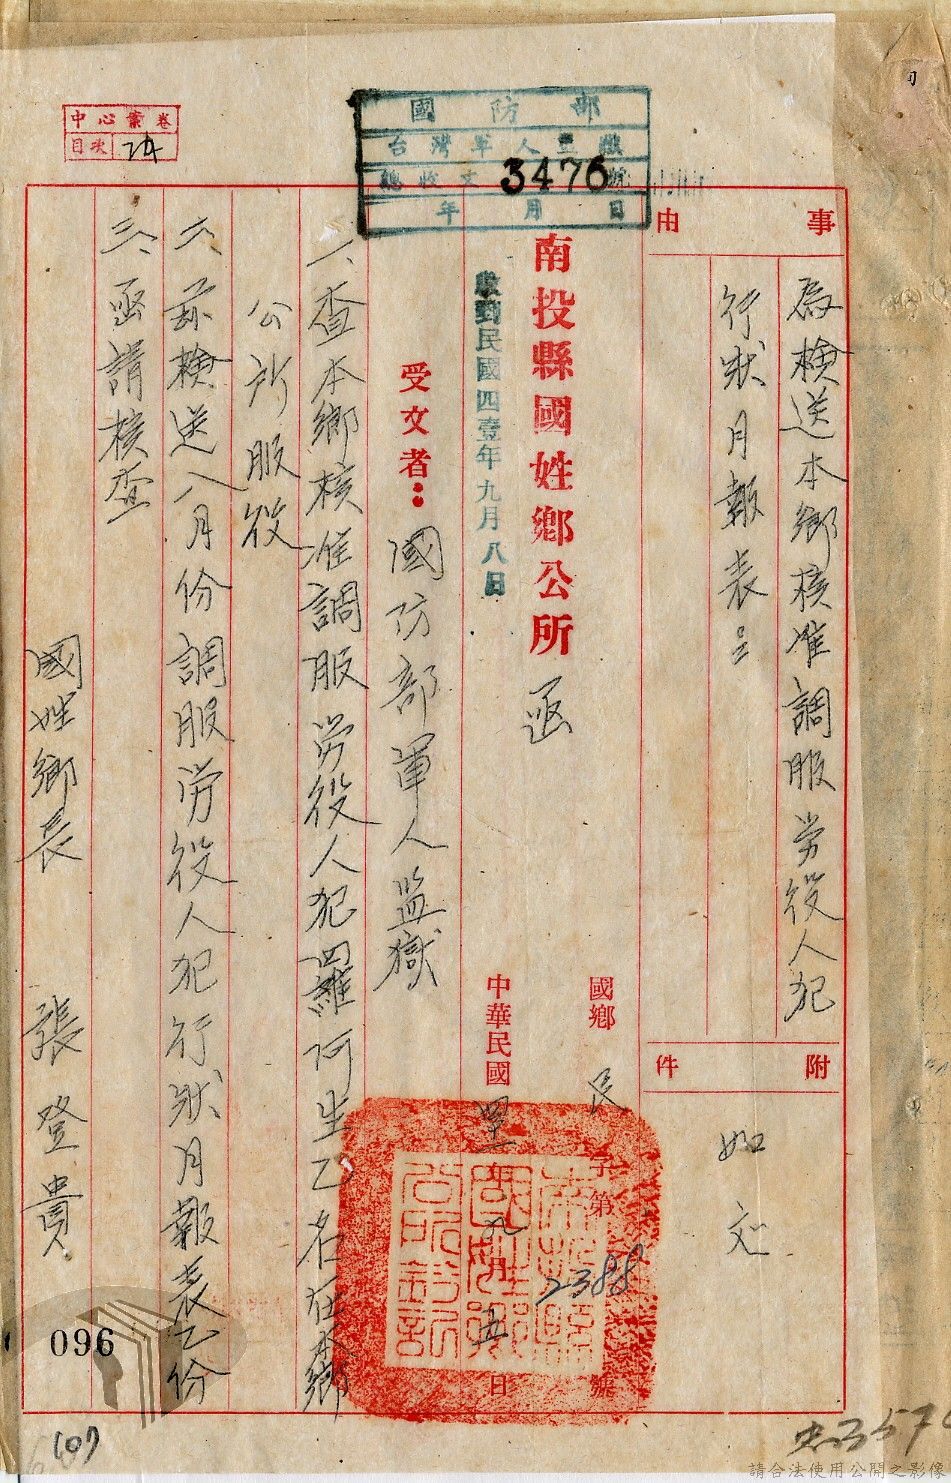 中心案卷
目次 24
國防部
台灣軍人監獄
總收文 3476號
年 月 日
事由
為檢送本鄉核准調服労役人犯
行狀月報表呈
附件
如文
南投縣國姓鄉公所 函
國鄉 民 字第 2388 號
中華民國 四一年九月五日
收到民國四壹年九月八日
受文者：國防部軍人監獄
一、查本鄉核准調服労役人犯羅阿生乙名在本鄉
公所服役
二、茲檢送八月份調服労役人犯行狀月報表乙份
三、函請核查
國姓鄉長 張登貴
南投縣
國姓鄉
公所鈐記
096
107
請合法使用公開之影像